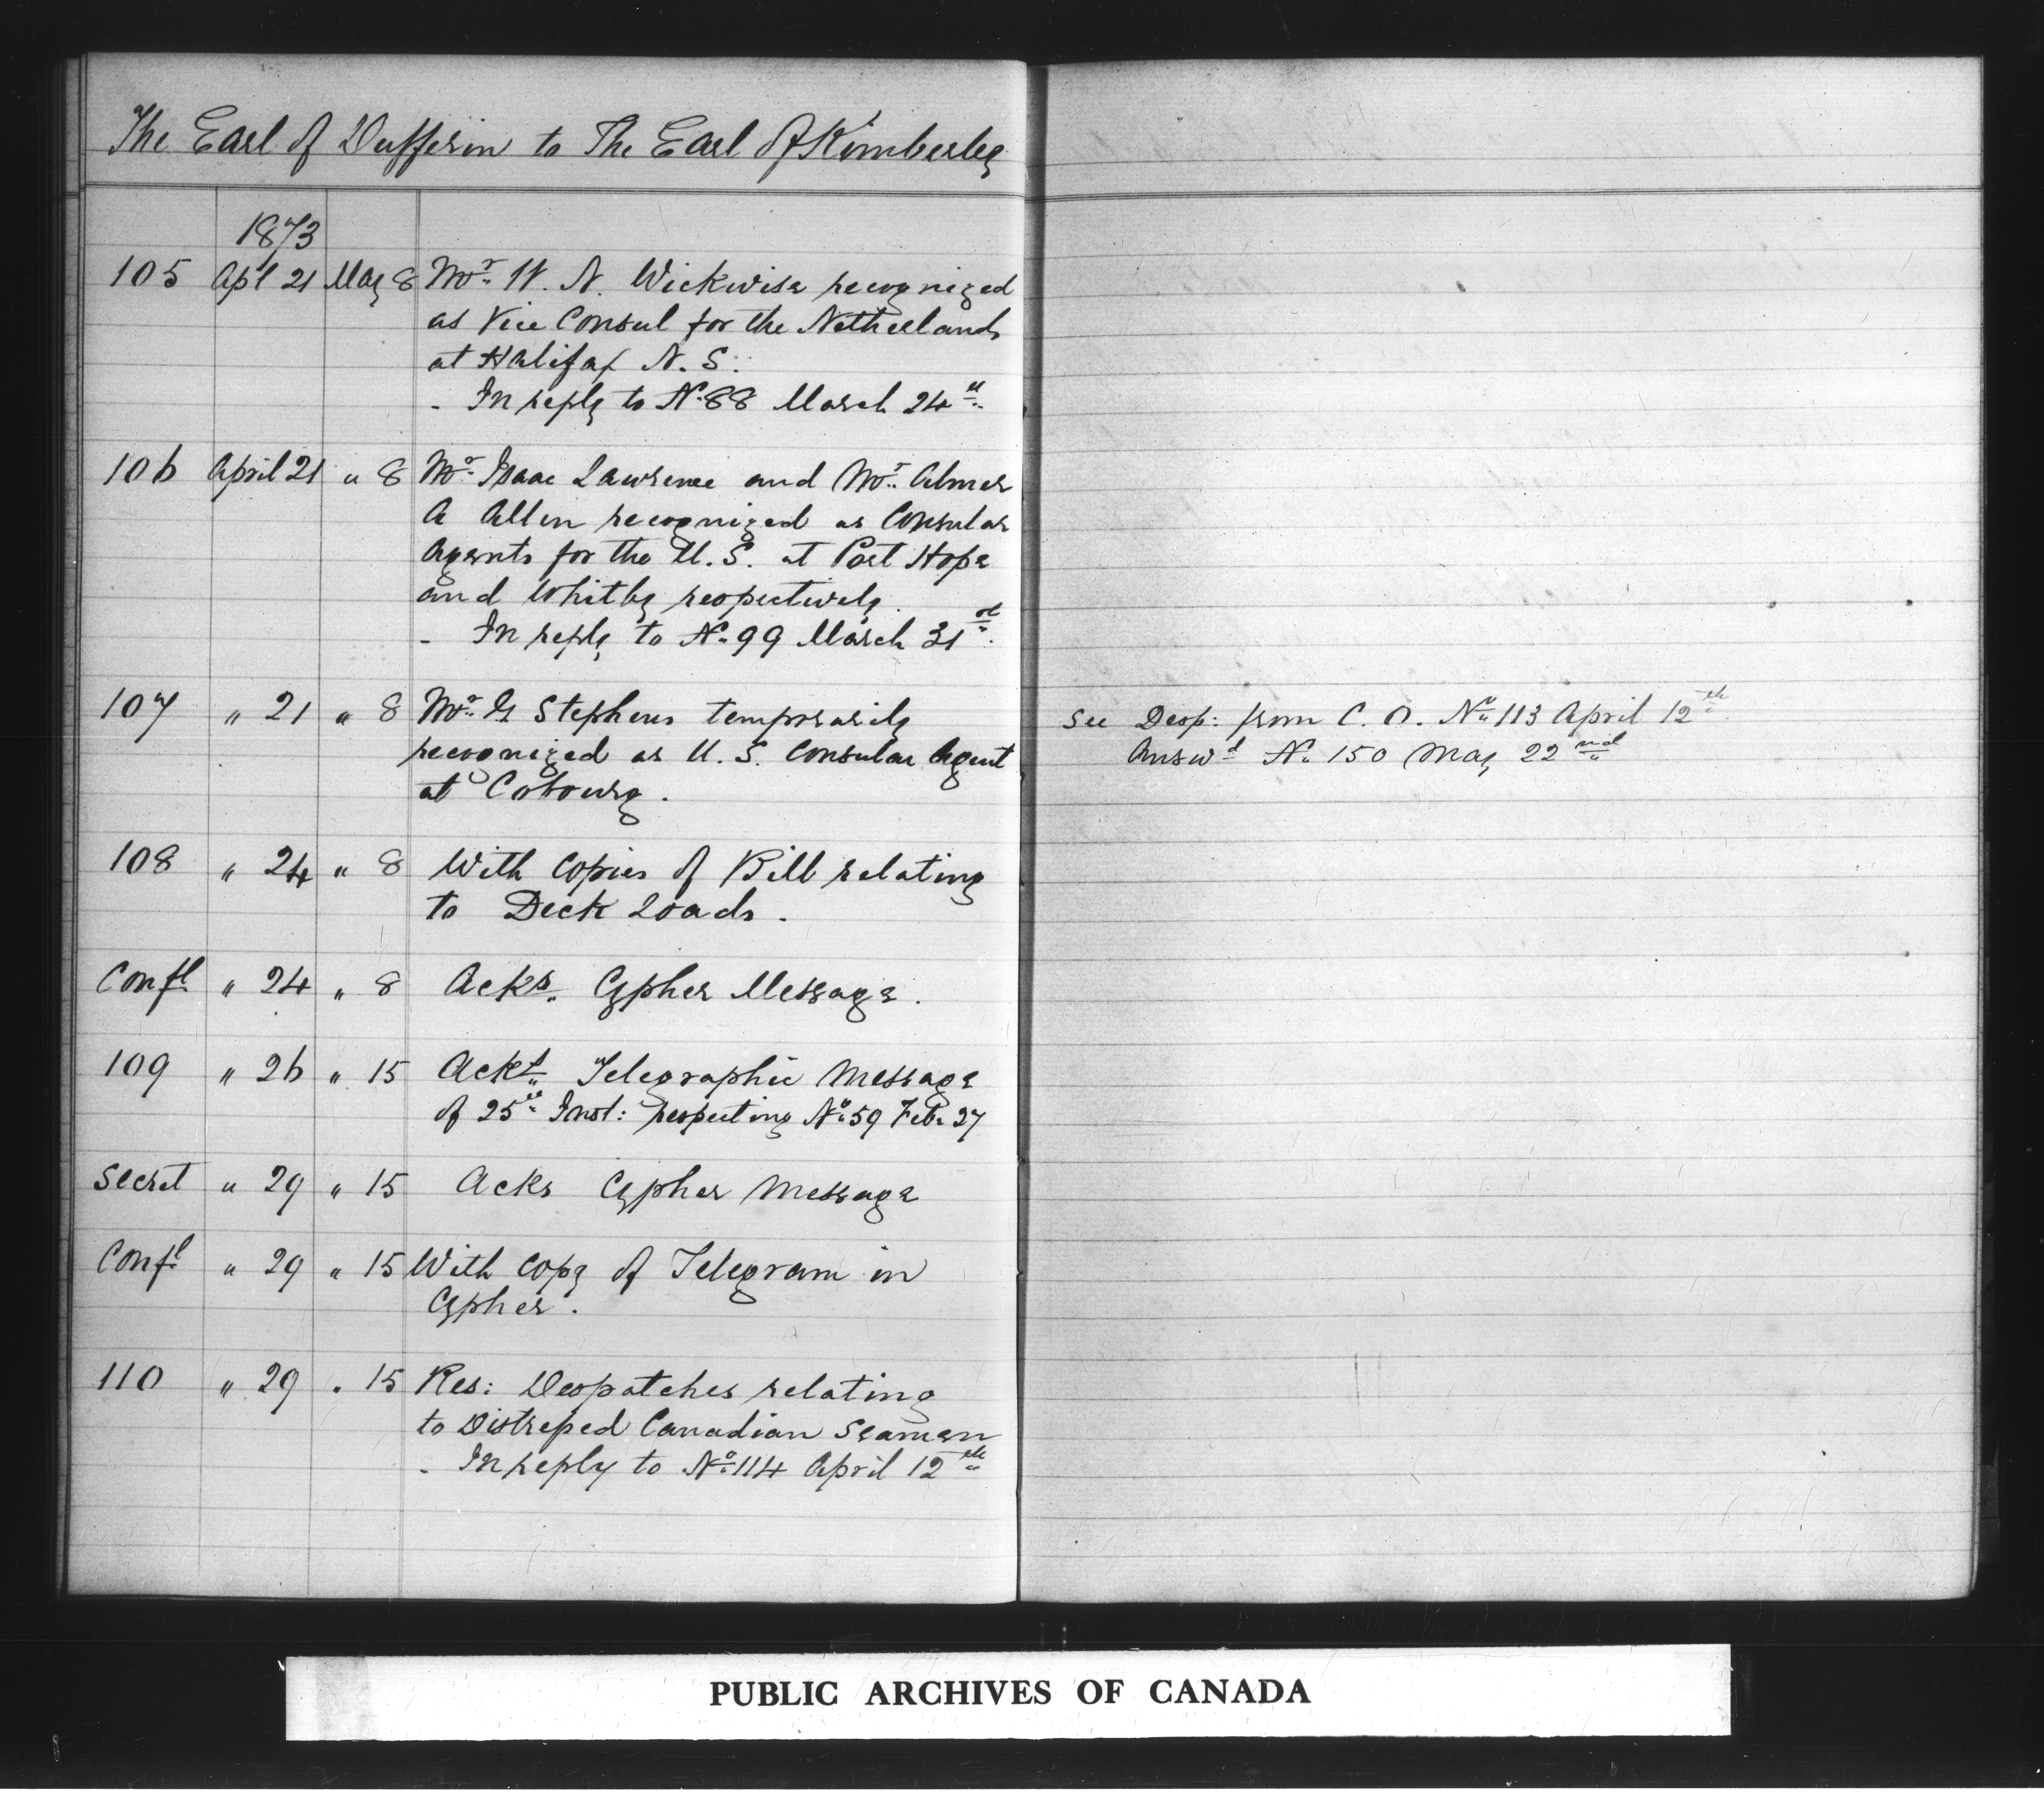 The Earl of Dufferin to The Earl Of Kimberley
1873
105 Apl 21 May 8 Mr. W. N. Wickwire recognized
as Vice Consul for the Netherlands
at Halifax N. S.
- In reply to No 88 March 24th
106 April 21 " 8 Mr. Isaac Lawrence and Mr. Abner
A Allin recognized as Consular
Agents for the U. S. at Port Hope
and Whitby respectively.
- In reply to No 99 March 31st.
107 " 21 " 8 Mr. G Stephens temporarily
recognized as U. S. Consular Agent
at Cobourg.
See Desp: from C. O. No 113 April 12th
Answd No 150 May 22nd
108 " 24 " 8 With Copies of Bill relating
to Deck Loads.
Confl " 24 " 8 Acks. Cypher Message.
109 " 26 " 15 Ackt. Telegraphic Message
of 25th Inst: respecting No 59 Feb. 27
Secret " 29 " 15 Acks Cypher Message
Confl " 29 " 15 With Copy of Telegram in
Cypher.
110 " 29 " 15 Res: Despatches relating
to Distressed Canadian Seamen
- In reply to No 114 April 12th
PUBLIC ARCHIVES OF CANADA